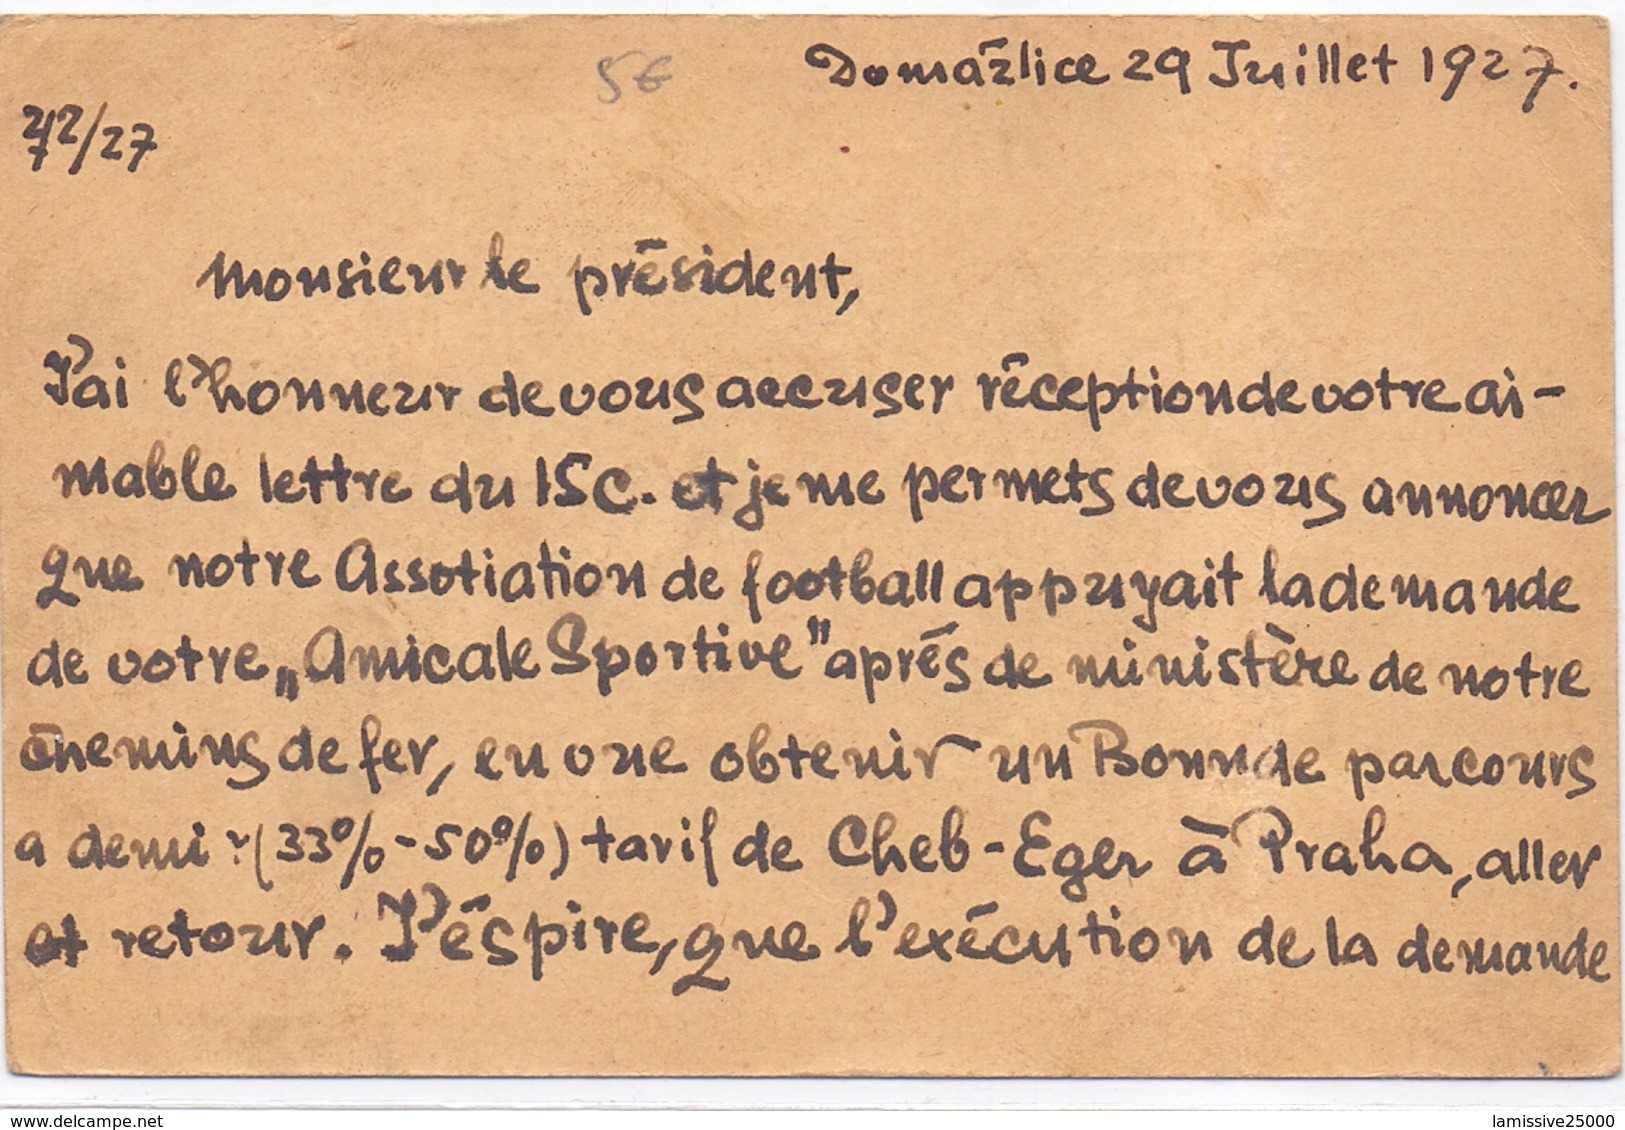 Domázlice 29 Juillet 1927.
5€
/27
Monsieur le président,
J'ai l'honneur de vous accuser réception de votre ai-
mable lettre du 15 c. et je me permets de vous annoncer
que notre Assotiation de football appuyait la demande
de votre „Amicale Sportive" aprés de ministère de notre
chemins de fer, en vue obtenir un Bonn de parcours
a demi (33%-50%) tarif de Cheb-Eger à Praha, aller
et retour. J'éspire, que l'exécution de la demande
delcampe.net
lamissive25000